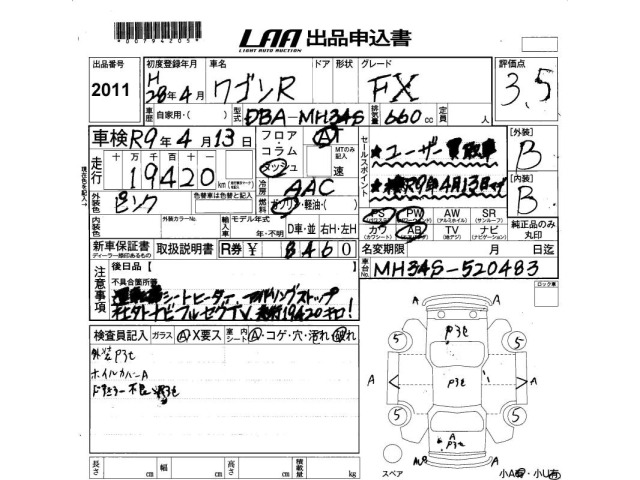 *00794205*
LAA 出品申込書
LIGHT AUTO AUCTION
出品番号 初度登録年月 車名 ドア 形状 グレード 評価点
2011 H 28年4月 ワゴンR FX 3.5
車歴 自家用・( ) 型式 DBA-MH34S 排気量 660cc 定員 人
車検 R9年4月13日 フロア・コラム ダッシュ AT MTのみ記入 速
セールスポイント ★ユーザー買取車
[外装] B
走行 十万千百十 19420 km 冷房 AAC
R9年4月13日
[内装] B
外装色 ピンク 色替車は色替と記入 燃料 ガソリン・軽油・( )
PS PW AW SR 純正品のみ丸印
(パワステ) (パワーウインド) (アルミホイル) (サンルーフ)
内装色 外装カラーNo. 輸入車 モデル年式 年・不明 D車・並 右H・左H
カワ AB TV ナビ
(カワシート) (エアバッグ) (地デジ) (ナビゲーション)
新車保証書 取扱説明書 R券 ¥ 8460 名変期限 月 日迄
ディーラー捺印あるもの
車台No. MH34S-520483
注意事項 後日品[ ]
不具合箇所
シートヒーター アイドリングストップ
社外ナビフルセグTV 走行19420キロ!
ロック車
検査員記入 ガラス A X要ス 室内シート A・コゲ・穴・汚れ・破れ
外装キズセ
ホイルカバーA
ドアミラー不良
5 5
A A
5 5
A
スペア
小A 小U有
長さ cm 幅 cm 高さ cm 積載量 kg